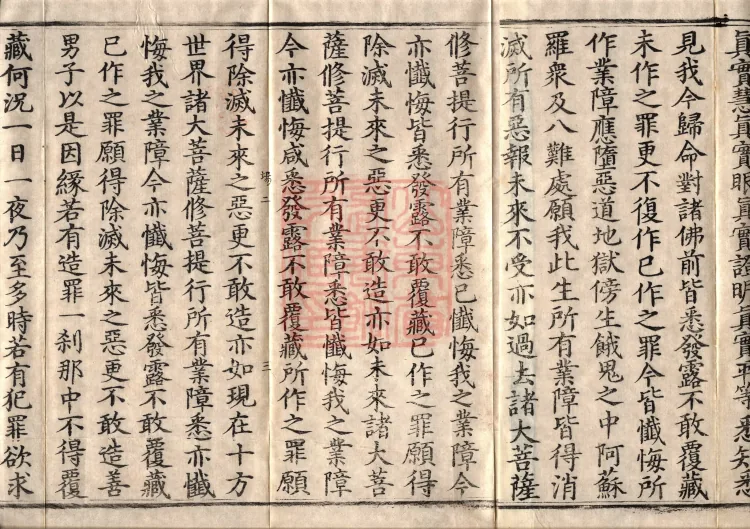 真實慧真實眼真實證明真實平等悉知悉
見我今歸命對諸佛前皆悉發露不敢覆藏
未作之罪更不復作已作之罪今皆懺悔所
作業障應墮惡道地獄傍生餓鬼之中阿蘇
羅眾及八難處願我此生所有業障皆得消
滅所有惡報未來不受亦如過去諸大菩薩
修菩提行所有業障悉已懺悔我之業障今
亦懺悔皆悉發露不敢覆藏已作之罪願得
除滅未來之惡更不敢造亦如未來諸大菩
薩修菩提行所有業障悉皆懺悔我之業障
今亦懺悔咸悉發露不敢覆藏所作之罪願
得除滅未來之惡更不敢造亦如現在十方
場二 三
世界諸大菩薩修菩提行所有業障悉亦懺
悔我之業障今亦懺悔皆悉發露不敢覆藏
已作之罪願得除滅未來之惡更不敢造善
男子以是因緣若有造罪一剎那中不得覆
藏何況一日一夜乃至多時若有犯罪欲求